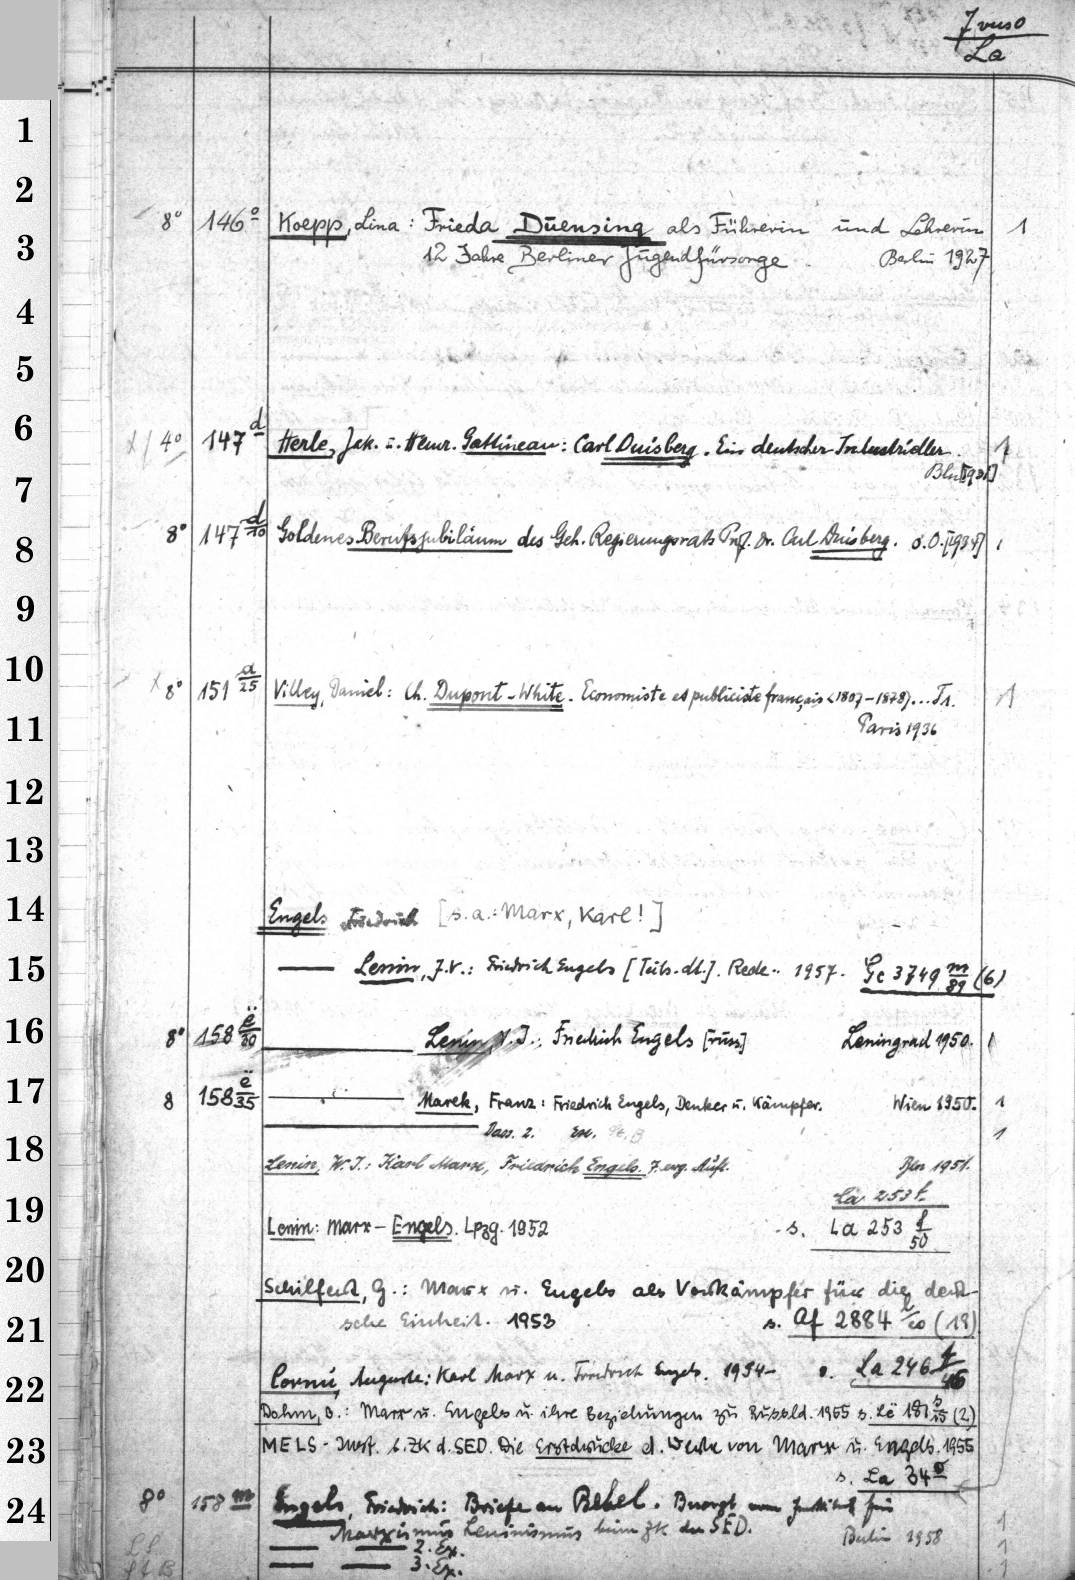 7 verso
La
1
2
8° 146° Koepp, Lina: Frieda Duensing als Führerin und Lehrerin 1
3
12 Jahre Berliner Jugendfürsorge. Berlin 1927
4
5
6
4° 147 d Herle, Jak. u. Heinr. Gattineau: Carl Duisberg. Ein deutscher Industrieller. 1
7
Bln [1931]
8° 147 d/10 Goldenes Berufsjubiläum des Geh. Regierungsrats Prof. Dr. Carl Duisberg. o.O. 1
8
9
10
8° 151 d/25 Villey, Daniel: Ch. Dupont-White. Economiste et publiciste français <1807-1878)... T1. 1
11
Paris 1936
12
13
14
Engels Friedrich [s.a.: Marx, Karl!]
15
Lenin, J.V.: Friedrich Engels [Teils.-dt.]. Rede.. 1957. Gc 3749 m/89 (6)
16
8° 158 ë/30 Lenin, V.I.: Friedrich Engels [russ] Leningrad 1950. 1
17
8 158 ë/35 Marek, Franz: Friedrich Engels, Denker u. Kämpfer. Wien 1950. 1
Dass. 2. Ex. 1
18
Lenin, W.I.: Karl Marx, Friedrich Engels. 7. erg. Aufl. Bln 1951.
La 253 f.
19
Lenin: Marx-Engels. Lpzg. 1952 s. La 253 f/50
20
Schilfert, G.: Marx u. Engels als Vorkämpfer für die deut-
21
sche Einheit. 1953 s. Af 2884 /20 (18)
22
Cornu, Auguste: Karl Marx u. Friedrich Engels. 1954- s. La 246 f/46
Dahm, O.: Marx u. Engels u. ihre Beziehungen zu Russld. 1955 s. Lë 181 s/15 (2)
23
MELS-Inst. b. ZK d. SED. Die Erstdrucke d. Werke von Marx u. Engels. 1955
s. La 34
24
8° 158 m Engels, Friedrich: Briefe an Bebel. Besorgt vom Institut für
Marxismus Leninismus beim ZK der SED. Berlin 1958 1
2. Ex. 1
3. Ex. 1